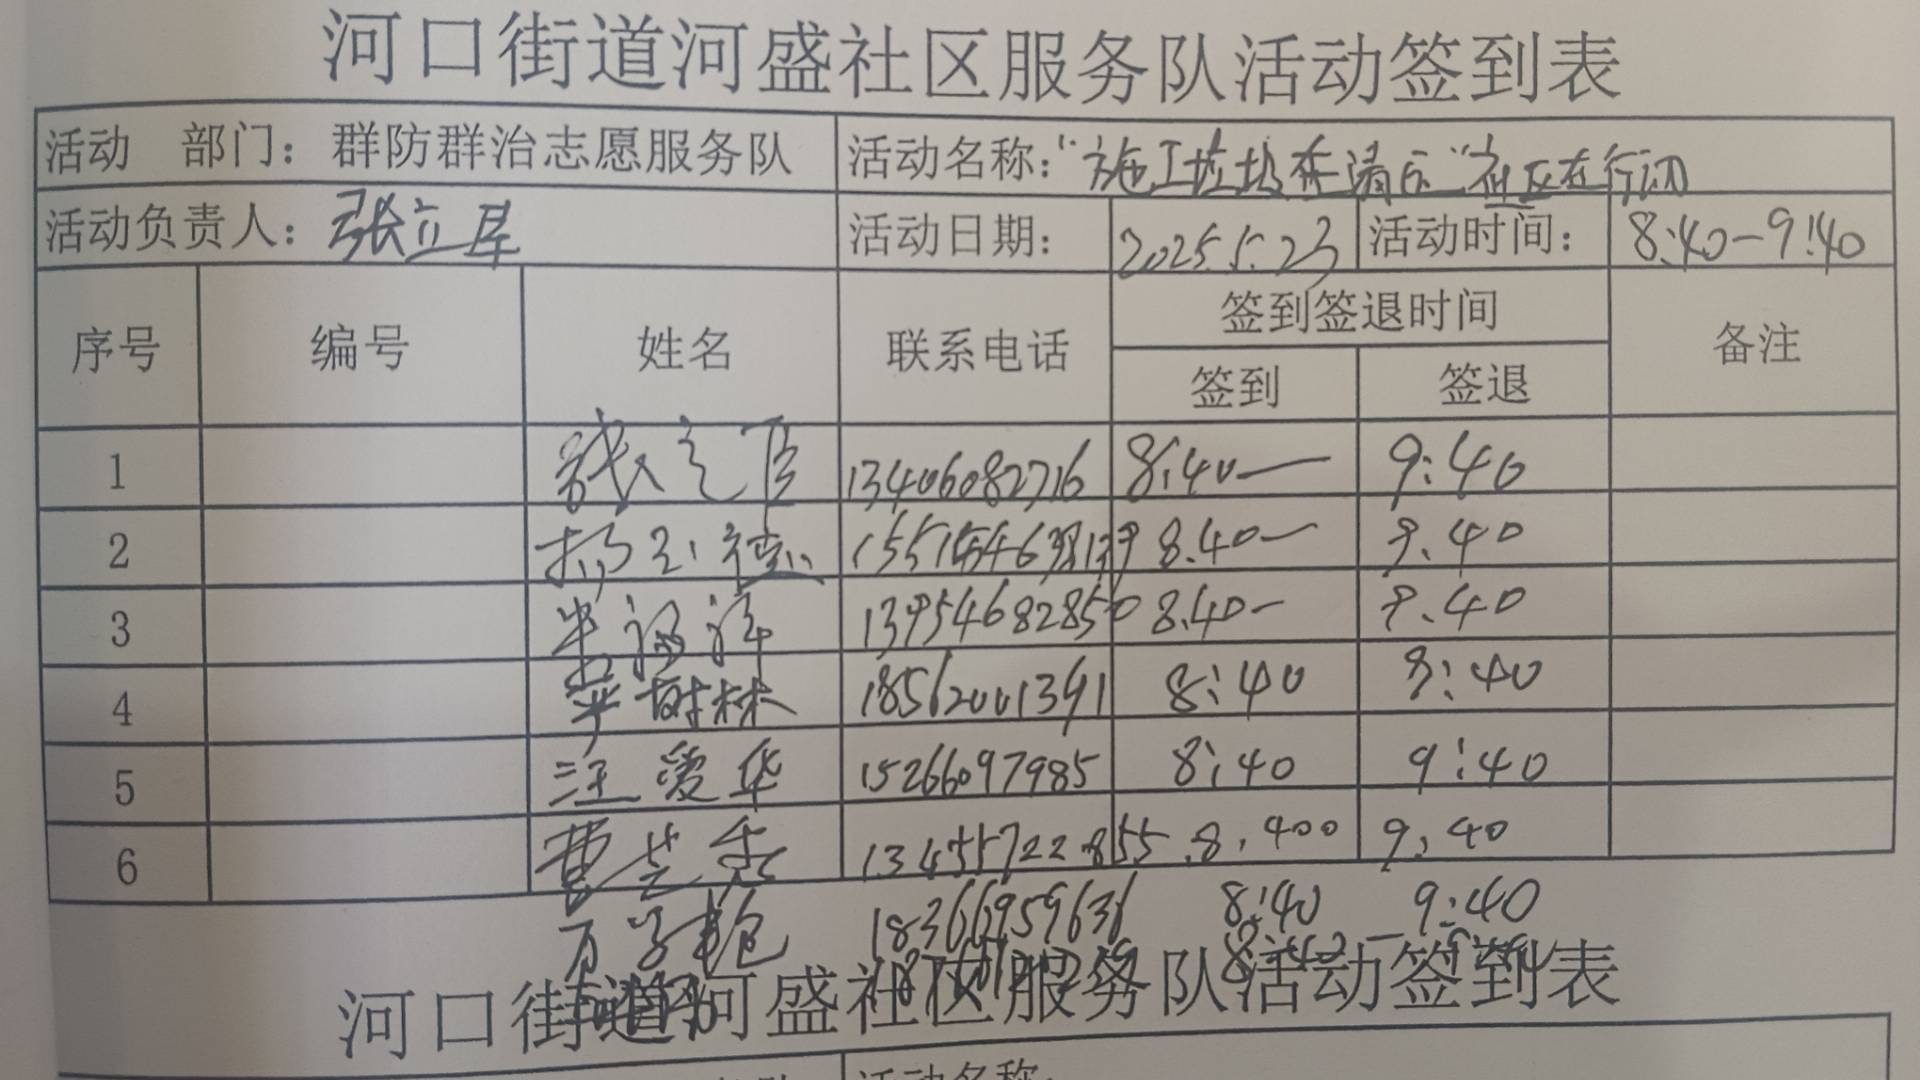 河口街道河盛社区服务队活动签到表
活动 部门：群防群治志愿服务队 活动名称：“施工垃圾在清后”社区在行动
活动负责人：张立 活动日期：2025.5.23 活动时间：8:40-9:40
序号 编号 姓名 联系电话 签到签退时间 备注
签到 签退
1 13406082716 8:40— 9:40
2 8.40— 9.40
3 13954682850 8.40- 9.40
4 树林 18562001391 8:40 9:40
5 汪爱华 15266097985 8:40 9:40
6 曹兰香 13455722855 8.400 9.40
万 18366959636 8:40 9:40
河口街道河盛社区服务队活动签到表
活动名称：